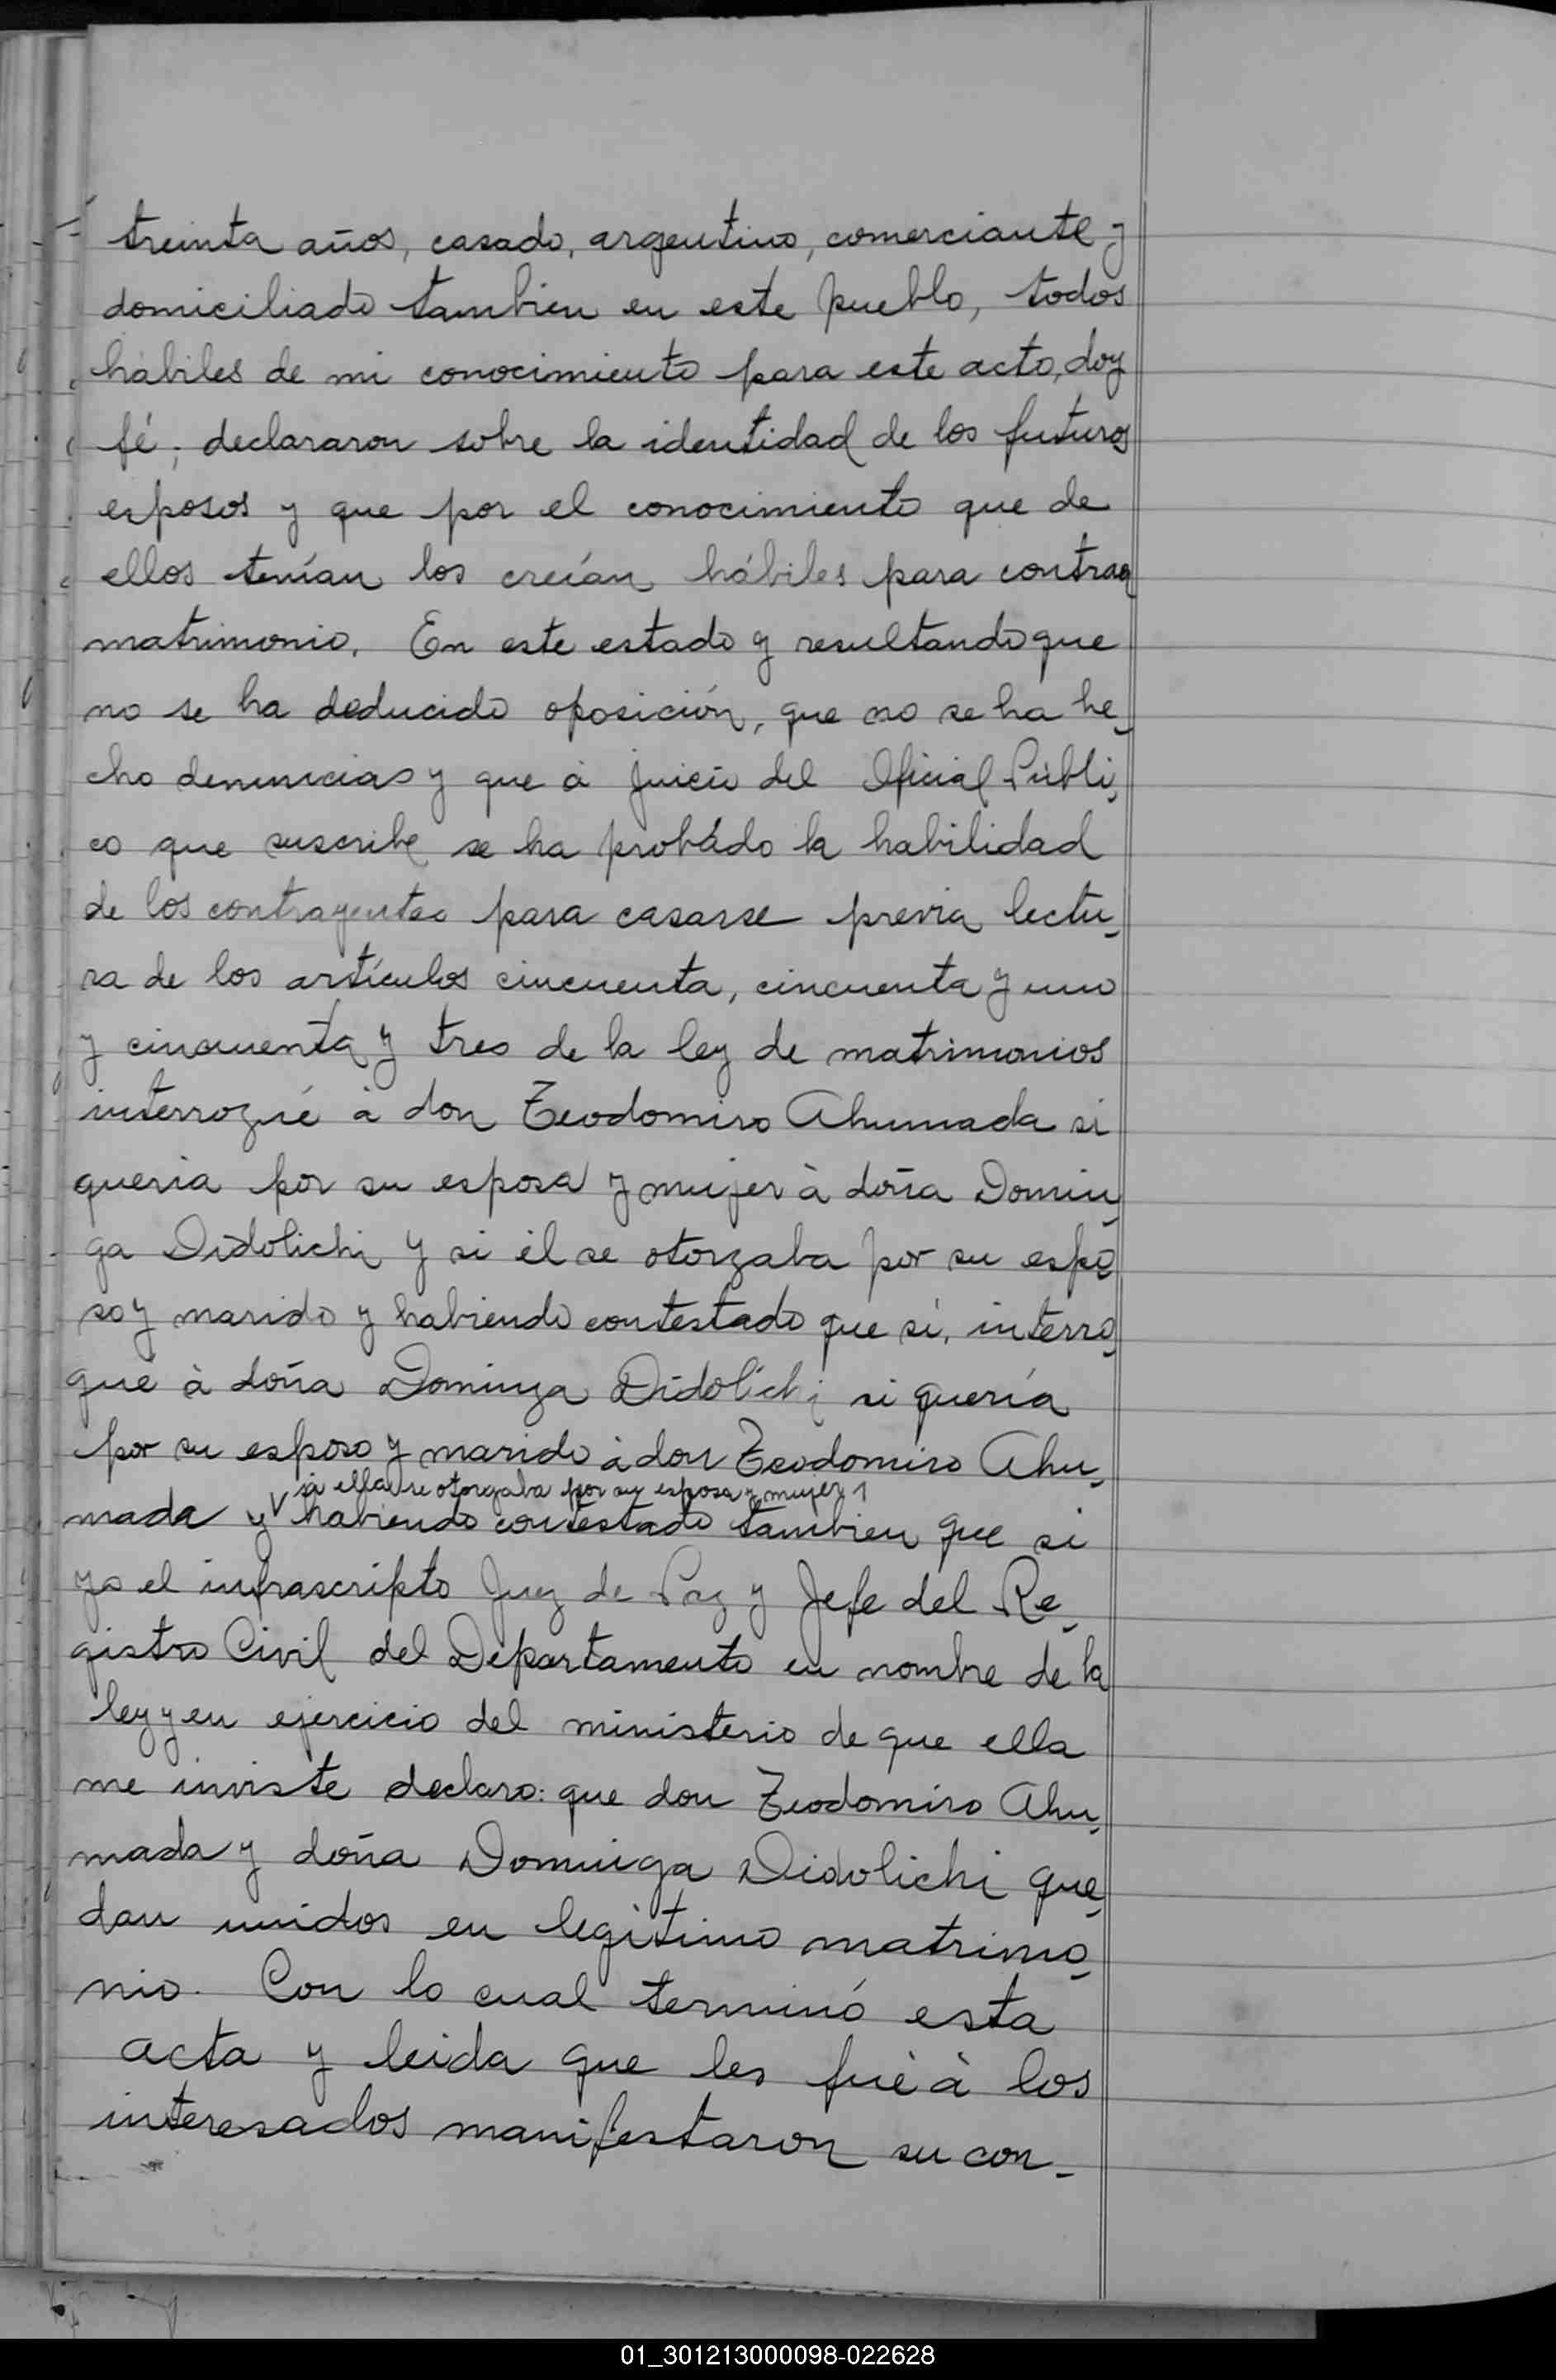 treinta años, casado, argentino, comerciante y
domiciliado tambien en este pueblo, todos
hábiles de mi conocimiento para este acto, doy
fé; declararon sobre la identidad de los futuros
esposos y que por el conocimiento que de
ellos tenían los creían hábiles para contraer
matrimonio. En este estado y resultando que
no se ha deducido oposición, que no se ha he-
cho denuncias y que á juicio del Oficial Públi-
co que suscribe se ha probádo la habilidad
de los contrayentes para casarse previa lectu-
ra de los artículos cincuenta, cincuenta y uno
y cincuenta y tres de la ley de matrimonios
interrogué á don Teodomiro Ahumada si
queria por su esposa y mujer à doña Domin-
ga Didolichi y si él se otorgaba por su espo-
so y marido y habiendo contestado que sí, interro-
gué à doña Dominga Didolichi si quería
por su esposo y marido à don Teodomiro Ahu-
si ella se otorgaba por su esposa y mujer y
mada y habiendo contestado tambien que si
yo el infrascripto Juez de Paz y Jefe del Re-
gistro Civil del Departamento en nombre de la
ley y en ejercicio del ministerio de que ella
me inviste declaro: que don Teodomiro Ahu-
mada y doña Dominga Didolichi que-
dan unidos en legítimo matrimo-
nio. Con lo cual terminó esta
acta y leida que les fué à los
interesados manifestaron su con-
01_301213000098-022628